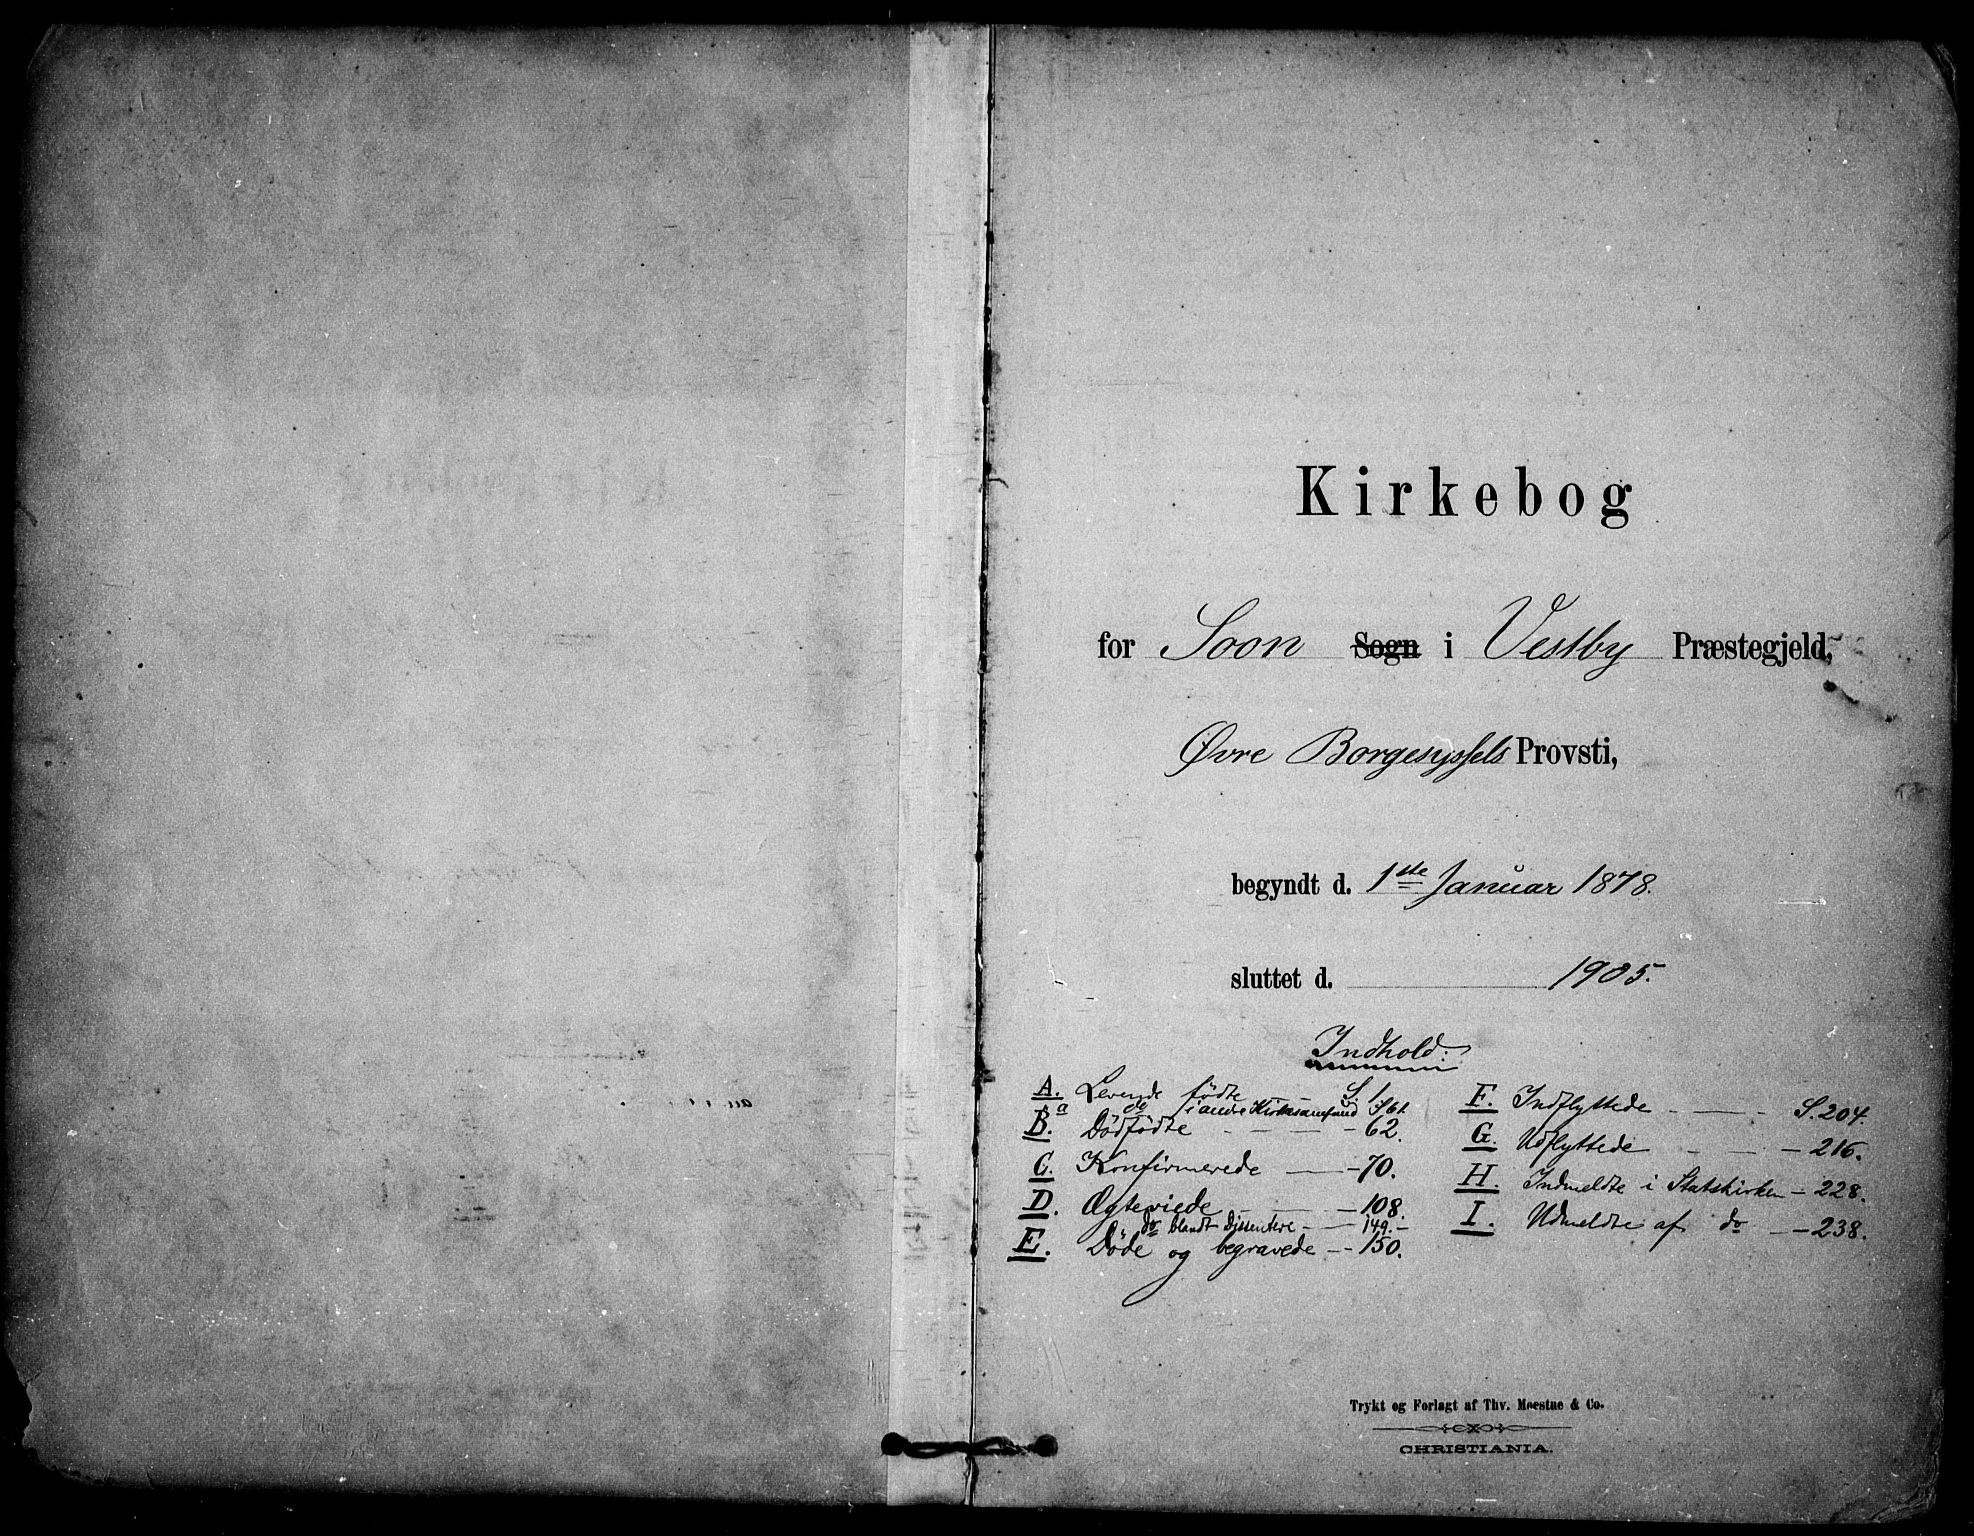 Kirkebog
for Soon Sogn i Vestby Præstegjeld,
Øvre Borgesyssels Provsti,
begyndt d. 1ste Januar 1878.
sluttet d. 1905.
Indhold:
A. Levende fødte — S. 1
a do i andre Kirkesamfund S 61
B. Dødfødte — — - 62.
C. Konfirmerede — - 70.
D. Ægteviede — - 108.
do blandt Dissentere — 149. -
E. Døde og begravede — - 150.
F. Indflyttede — — S. 204.
G. Udflyttede — — - 216.
H. Indmeldte i Statskirken - 228.
I. Udmeldte af do — - 238.
Trykt og Forlagt af Thv. Moestue & Co.
CHRISTIANIA.